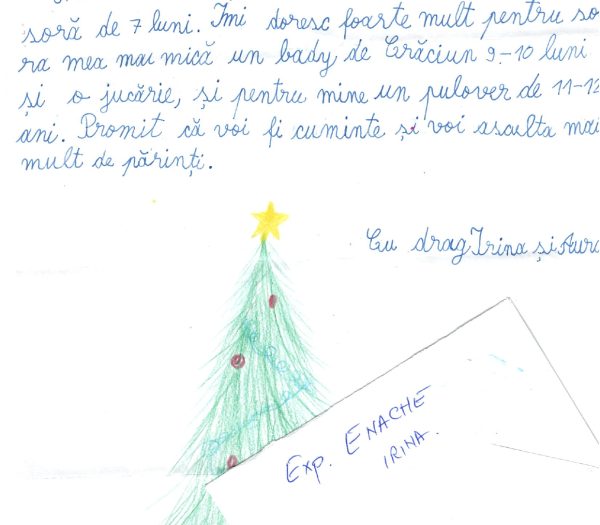 soră de 7 luni. Îmi doresc foarte mult pentru so
ra mea mai mică un bady de Crăciun 9-10 luni
și o jucărie, și pentru mine un pulover de 11-12
ani. Promit că voi fi cuminte și voi asculta mai
mult de părinți.
Cu drag Irina și Aura
Exp. ENACHE
IRINA.